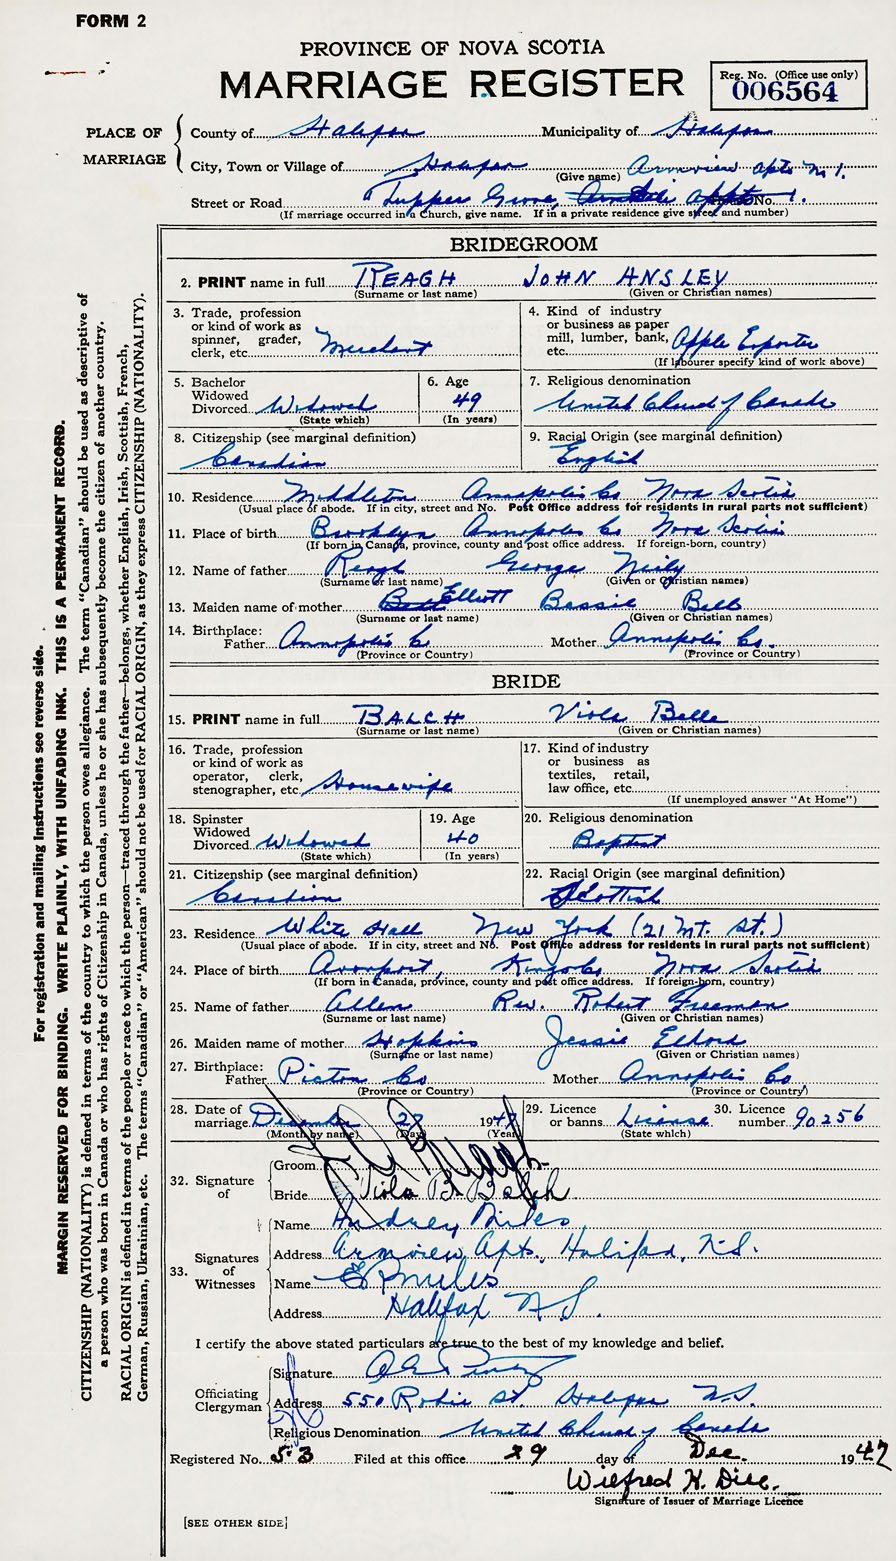 FORM 2
PROVINCE OF NOVA SCOTIA
MARRIAGE REGISTER
Reg. No. (Office use only)
006564
PLACE OF MARRIAGE
County of Halifax Municipality of Halifax
City, Town or Village of Halifax (Give name) Armview Apts No 1.
Street or Road Tupper Grove, No. 1.
(If marriage occurred in a Church, give name. If in a private residence give street and number)
BRIDEGROOM
2. PRINT name in full REAGH JOHN ANSLEY
(Surname or last name) (Given or Christian names)
3. Trade, profession or kind of work as spinner, grader, clerk, etc. Merchant
4. Kind of industry or business as paper mill, lumber, bank, etc. Apple Exporter
(If labourer specify kind of work above)
5. Bachelor Widowed Divorced Widowed (State which)
6. Age 49 (In years)
7. Religious denomination United Church of Canada
8. Citizenship (see marginal definition) Canadian
9. Racial Origin (see marginal definition) English
10. Residence Middleton Annapolis Co Nova Scotia
(Usual place of abode. If in city, street and No. Post Office address for residents in rural parts not sufficient)
11. Place of birth Brooklyn Annapolis Co Nova Scotia
(If born in Canada, province, county and post office address. If foreign-born, country)
12. Name of father Reagh George Neily
(Surname or last name) (Given or Christian names)
13. Maiden name of mother Elliott Bessie Bell
(Surname or last name) (Given or Christian names)
14. Birthplace: Father Annapolis Co Mother Annapolis Co.
(Province or Country) (Province or Country)
BRIDE
15. PRINT name in full BALCH Viola Belle
(Surname or last name) (Given or Christian names)
16. Trade, profession or kind of work as operator, clerk, stenographer, etc. Housewife
17. Kind of industry or business as textiles, retail, law office, etc.
(If unemployed answer "At Home")
18. Spinster Widowed Divorced Widowed (State which)
19. Age 40 (In years)
20. Religious denomination Baptist
21. Citizenship (see marginal definition) Canadian
22. Racial Origin (see marginal definition) Scottish
23. Residence White Hall New York (21 Mt. St.)
(Usual place of abode. If in city, street and No. Post Office address for residents in rural parts not sufficient)
24. Place of birth Avonport, Kings Co Nova Scotia
(If born in Canada, province, county and post office address. If foreign-born, country)
25. Name of father Allen Rev. Robert Freeman
(Surname or last name) (Given or Christian names)
26. Maiden name of mother Hopkins Jessie
(Surname or last name) (Given or Christian names)
27. Birthplace: Father Pictou Co Mother Annapolis Co
(Province or Country) (Province or Country)
28. Date of marriage December 27 1947
(Month by name) (Day) (Year)
29. Licence or banns License (State which)
30. Licence number 90256
32. Signature of
Groom J A Reagh
Bride Viola B. Balch
33. Signatures of Witnesses
Name Audrey Miles
Address Armview Apts., Halifax, N.S.
Name Miles
Address Halifax N.S.
I certify the above stated particulars are true to the best of my knowledge and belief.
Officiating Clergyman
Signature
Address 550 Robie St. Halifax N.S.
Religious Denomination United Church of Canada
Registered No. 53 Filed at this office 29 day of Dec. 1947
Wilfred H. Dill.
Signature of Issuer of Marriage Licence
[SEE OTHER SIDE]
For registration and mailing instructions see reverse side.
MARGIN RESERVED FOR BINDING. WRITE PLAINLY, WITH UNFADING INK. THIS IS A PERMANENT RECORD.
CITIZENSHIP (NATIONALITY) is defined in terms of the country to which the person owes allegiance. The term "Canadian" should be used as descriptive of
a person who was born in Canada or who has rights of Citizenship in Canada, unless he or she has subsequently become the citizen of another country.
RACIAL ORIGIN is defined in terms of the people or race to which the person—traced through the father—belongs, whether English, Irish, Scottish, French,
German, Russian, Ukrainian, etc. The terms "Canadian" or "American" should not be used for RACIAL ORIGIN, as they express CITIZENSHIP (NATIONALITY).